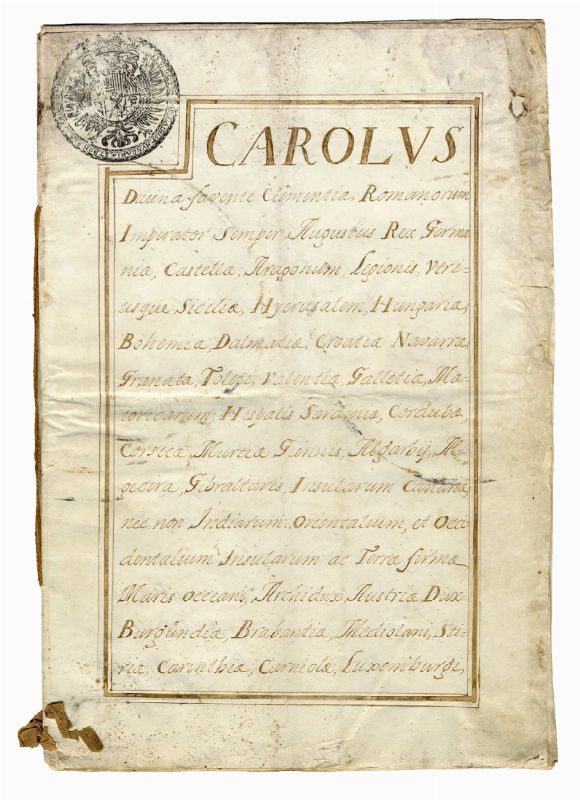 CAROLVS
Diuina favente Clementia, Romanorum
Imperator Semper Augustus Rex Germa
niæ, Castellæ, Aragonum, Legionis, Vtri-
usque Siciliæ, Hyerusalem, Hungariæ,
Bohemiæ, Dalmatiæ, Croatiæ Navarræ,
Granatæ, Toleti, Valentiæ, Galletiæ, Ma-
ioricarum, Hispalis Sardiniæ, Cordubæ,
Corsicæ, Murtiæ Giennis, Algarbij, Al-
geciræ, Gibraltaris, Insularum Canariæ,
nec non Indiarum Orientalium, et Occi
dentalium Insularum ac Terræ firmæ
Maris Occeani, Archidux Austriæ Dux
Burgundiæ, Brabantiæ, Mediolani, Sti-
riæ, Carinthiæ, Carniolæ, Luxemburgi,